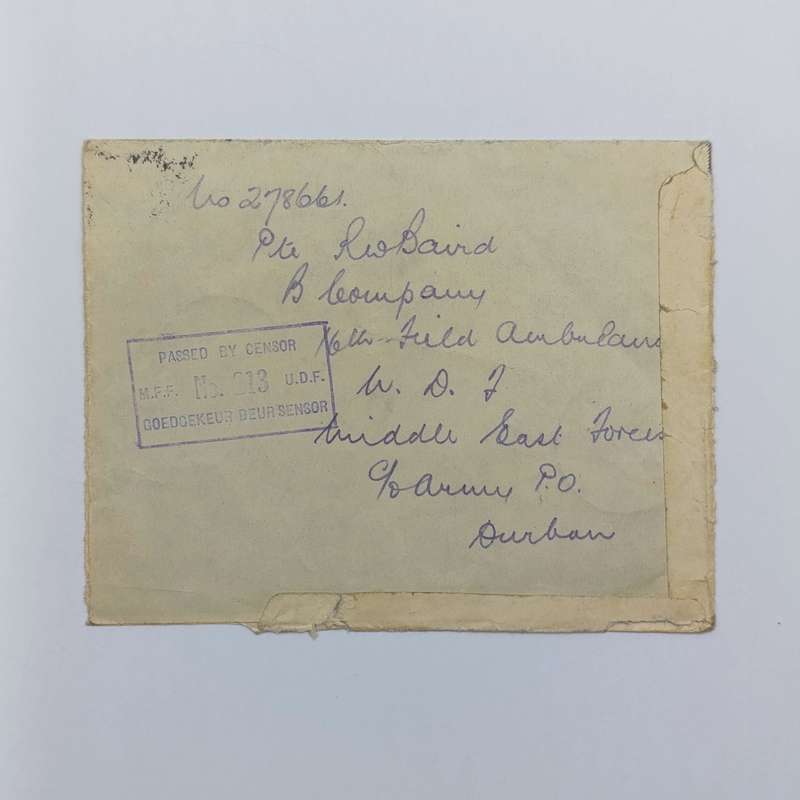 No 278661.
Pte R W Baird
B Company
16th Field Ambulan
U. D. F
Middle East Forces
c/o Army P.O.
Durban
PASSED BY CENSOR
M.F.F. No. 213 U.D.F.
GOEDGEKEUR DEUR SENSOR